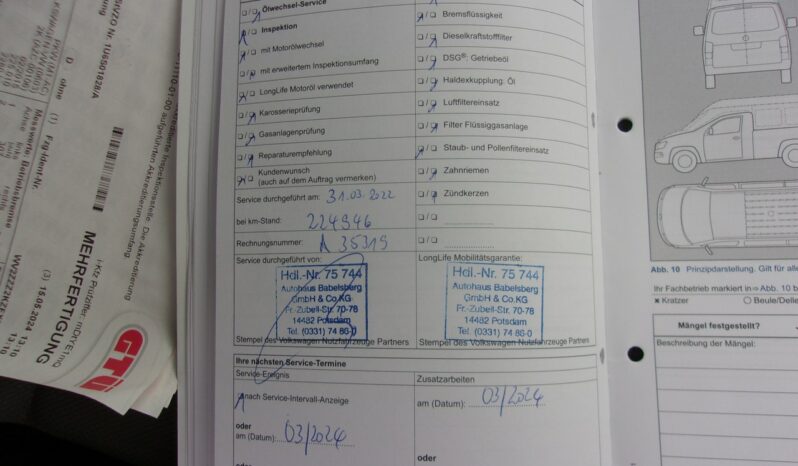 Ölwechsel-Service
Inspektion
mit Motorölwechsel
mit erweitertem Inspektionsumfang
LongLife Motoröl verwendet
Karosserieprüfung
Gasanlagenprüfung
Reparaturempfehlung
Kundenwunsch
(auch auf dem Auftrag vermerken)
Service durchgeführt am: 31.03.2022
bei km-Stand: 224946
Rechnungsnummer: A 35319
Service durchgeführt von:
Hdl.-Nr. 75 744
Autohaus Babelsberg
GmbH & Co.KG
Fr.-Zubeil-Str. 70-78
14482 Potsdam
Tel. (0331) 74 86-0
Stempel des Volkswagen Nutzfahrzeuge Partners
Bremsflüssigkeit
Dieselkraftstofffilter
DSG®: Getriebeöl
Haldexkupplung: Öl
Luftfiltereinsatz
Filter Flüssiggasanlage
Staub- und Pollenfiltereinsatz
Zahnriemen
Zündkerzen
LongLife Mobilitätsgarantie:
Hdl.-Nr. 75 744
Autohaus Babelsberg
GmbH & Co.KG
Fr.-Zubeil-Str. 70-78
14482 Potsdam
Tel. (0331) 74 86-0
Stempel des Volkswagen Nutzfahrzeuge Partners
Ihre nächsten Service-Termine
Service-Ereignis
nach Service-Intervall-Anzeige
oder
am (Datum): 03/2024
oder
Zusatzarbeiten
am (Datum): 03/2024
oder
Abb. 10 Prinzipdarstellung. Gilt für alle
Ihr Fachbetrieb markiert in ⇒ Abb. 10 b
Kratzer
Beule/Delle
Mängel festgestellt?
Beschreibung der Mängel:
MEHRFERTIGUNG
(3) 15.05.202
13:10
GTÜ
ohne
(1) Fzg-Ident-Nr.
Messwerte: Betriebsbremse